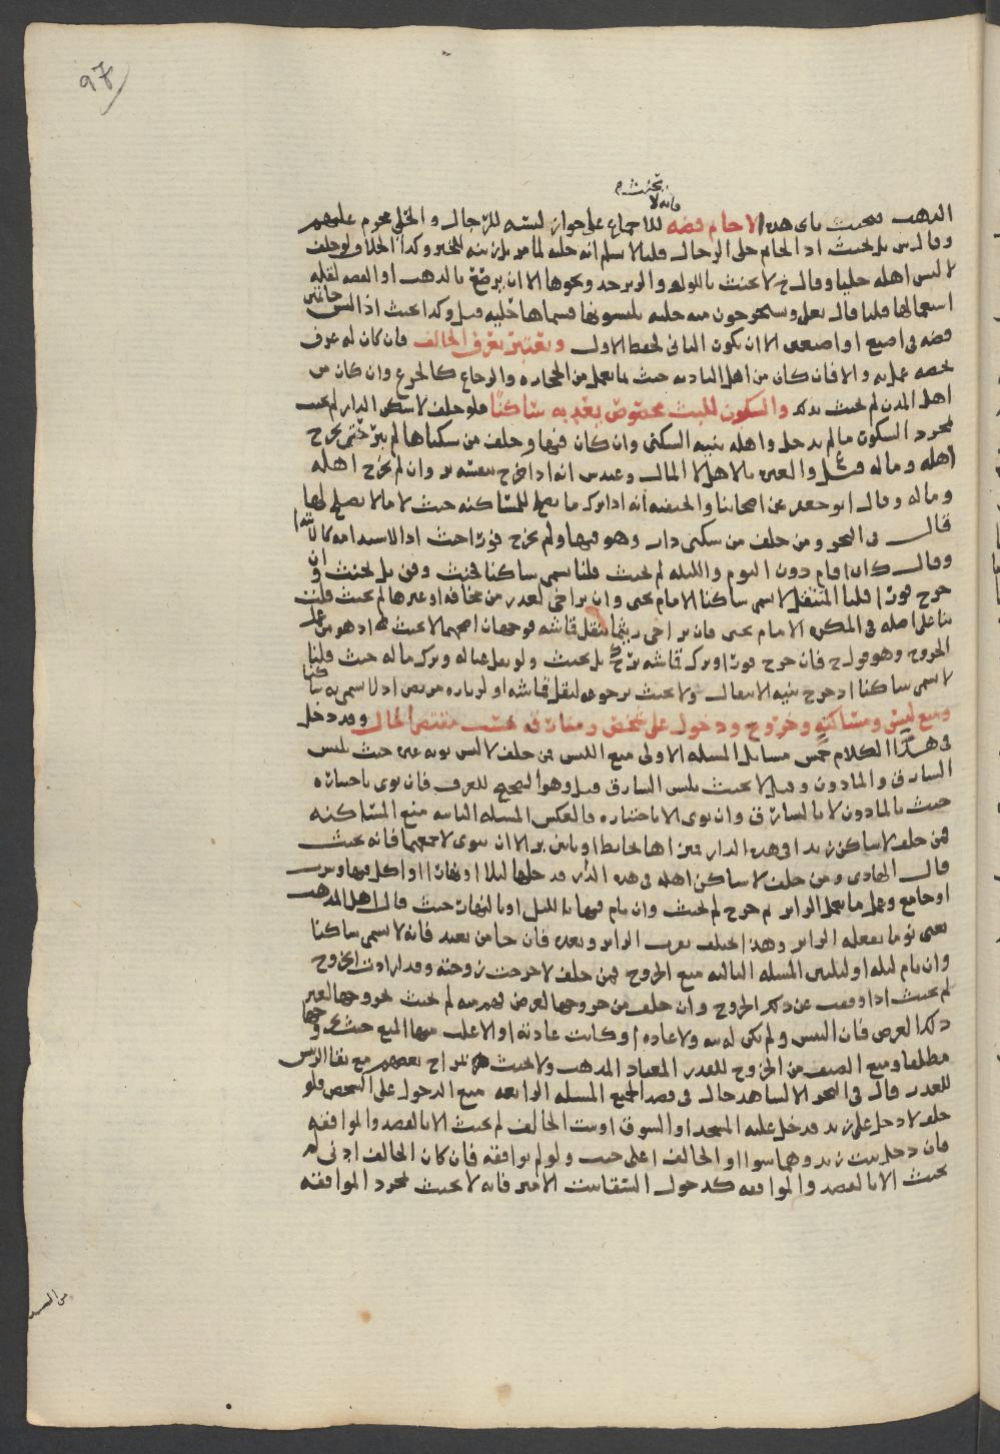 ٩٧
يحنث
فانه لا
الذهب فيحنث باي هذه الا خاتم فضه للاجماع على جواز لبسه للرجال و الحلي محرم عليهم
وقال بل يحنث اذ الخاتم حلي الرجال قلنا لا نسلم انه حليه لما مر بل زينه وكذا الخلاف لو حلف
لا لبس اهله حليا وقال ح لا يحنث باللولو والزبرجد ونحوها الا ان يرصع بالذهب او الفضه لقله
استعمالها قلنا قال تعلى وتستخرجون منه حليه تلبسونها فسماها حليه قيل وكذا يحنث اذا لبس خاتمي
فضه في اصبع او اصبعين الا ان يكون الثاني لحفظ الاول ويعتبر بعرف الحالف فان كان له عرف
يخصه عمل به والا فان كان من اهل الباديه حنث بما يعمل من الحجاره والزجاج كالجزع وان كان من
اهل المدن لم يحنث بذلك والسكون للبث مخصوص يعد به ساكنا فلو حلف لا سكن الدار لم يحنث
بمجرد السكون ما لم يدخل واهله بنيه السكنى وان كان فيها وحلف من سكناها لم يبر حتى يخرج
اهله وماله قيل والعبره بالاهل لا المال وعند س انه اذا خرج بنفسه بر وان لم يخرج اهله
وماله وقال ابو جعفر عن اصحابنا والحنفيه انه اذا ترك ما يصلح للمساكنه حنث لا ما لا يصلح لها
قال في البحر ومن حلف من سكنى دار وهو فيها ولم يخرج فورا حنث اذ الاستدامه كالابتدا
وقال ك ان اقام دون اليوم والليله لم يحنث قلنا يسمى ساكنا فحنث وفي بل يحنث ان
خرج فورا قلنا المنتقل لا يسمى ساكنا الامام يحيى وان تراخى لعذر من مخافه او غيرها لم يحنث قلت
بنا على اصله في المكره الامام يحيى فان تراخى ريثما ينقل قماشه فوجهان اصحهما لا يحنث اذ هو من عمل
الخروج وهو قول ح فان خرج فورا وترك قماشه بر ح ك بل يحنث ولو نقل عياله وترك ماله حنث قلنا
لا يسمى ساكنا اذ خرج بنيه الانتقال ولا يحنث برجوعه لنقل قماشه او لزياره مريض اذ لا يسمى به ساكنا
ومنع لبس ومساكنه وخروج ودخول على شخص ومفارقه بحسب مقتضى الحال وقد دخل
في هذا الكلام خمس مسايل المساله الاولى منع اللبس فمن حلف لا لبس ثوبه غيره حنث بلبس
السارق والماذون وقيل لا يحنث بلبس السارق قيل وهو الصحيح للعرف فان نوى باختياره
حنث بالماذون لا بالسارق وان نوى الا باختياره فالعكس المساله الثانيه منع المساكنه
فمن حلف لا ساكن زيدا في هذه الدار فميزاها بحايط او بابين بر الا ان ينوى لا جمعهما فانه يحنث
قال الهادي ومن حلف لا ساكن اهله في هذه الدار فدخلها ليلا او نهارا او اكل فيها وشرب
او جامع وعمل ما يعمل الزاير ثم خرج لم يحنث وان نام فيها بالليل او بالنهار حنث قال اهل المذهب
يعني نوما يفعله الزاير وهذا يختلف بقرب الزاير وبعده فان جا من بعيد فانه لا يسمى ساكنا
وان نام ليله او ليلتين المساله الثالثه منع الخروج فمن حلف لا خرجت زوجته وقد ارادت الخروج
لم يحنث اذا وقفت عن ذلك الخروج وان حلف من خروجها لغرض فهم منه لم يحنث بخروجها لغير
ذلك الغرض فان التبس ولم تكن له نيه ولا عاده او كانت عادته او الاغلب منها المنع حنث بخروجها
مطلقا ومنع الضيف من الخروج للقدر المعتاد المذهب ولا يحنث بخراج بعضهم مع بقا الريس
للعذر قال في البحر الا لشاهد حال في قصد الجميع المساله الرابعه منع الدخول على الشخص فلو
حلف لا دخل على زيد فدخل عليه المسجد او السوق او بيت الحالف لم يحنث الا بالقصد والموافقه
فان دخل بيت زيد وهما سوا او الحالف اعلى حنث ولو لم يوافقه فان كان الحالف ادنى لم
يحنث الا بالقصد والموافقه كدخول السقا بيت الامير فانه لا يحنث بمجرد الموافقه